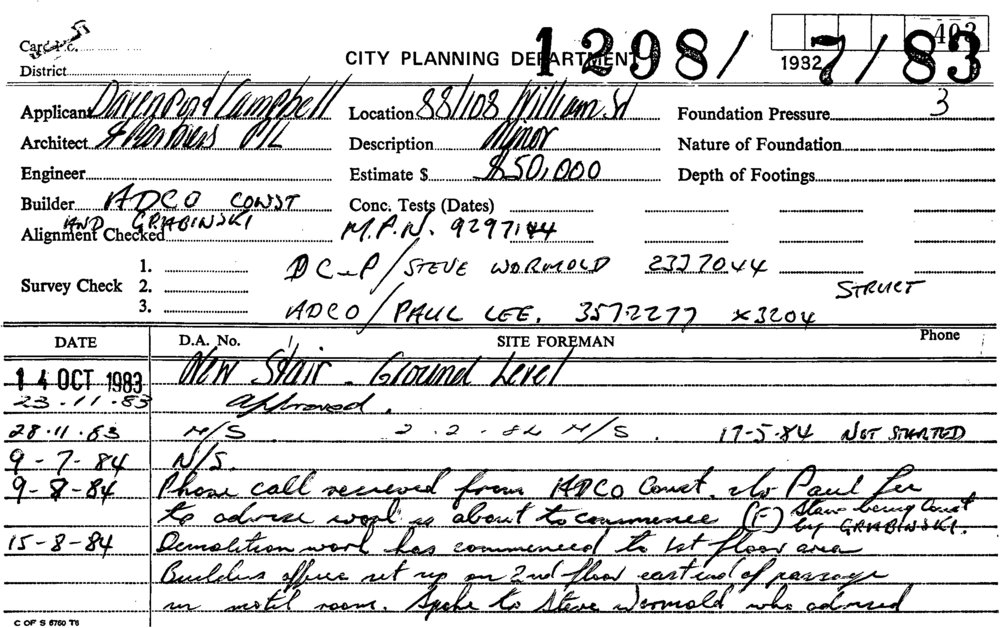 Card No.
403
CITY PLANNING DEPARTMENT 1298/7/83
District
1932
Applicant Davenport Campbell Location 88/108 William St Foundation Pressure 3
Architect & Partners P/L Description Minor Nature of Foundation
Engineer Estimate $ $50,000 Depth of Footings
Builder ADCO CONST Conc. Tests (Dates)
AND GRABINSKI
Alignment Checked M.P.N. 9297144
1. DC-P/STEVE WORMOLD 2337044
Survey Check 2. STRUCT
3. ADCO/PAUL LEE. 3572277 x3204
DATE D.A. No. SITE FOREMAN Phone
14 OCT 1983 New Stair - Ground Level
23.11.83 Approved.
28.11.83 N/S 2-2-84 N/S. 17-5-84 NOT STARTED
9-7-84 N/S.
9-8-84 Phone call recieved from ADCO Const. Paul Lee
to advise work is about to commence (F) Stairs being const by GRABINSKI.
15-8-84 Demolition work has commenced to 1st floor area
Builders office set up on 2nd floor east end of passage
in motel room. Spoke to Steve Wormold who advised
C OF S 6760 T6